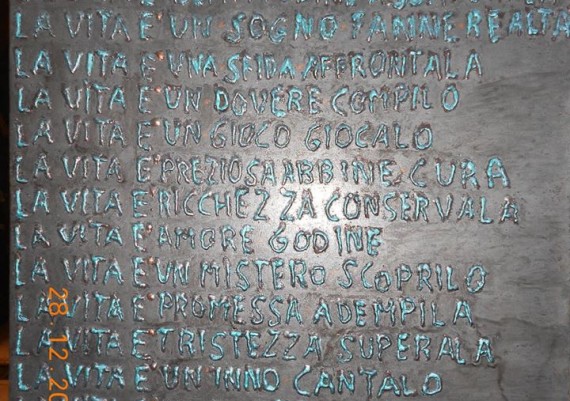 LA VITA E' UN SOGNO FANNE REALTA
LA VITA E' UNA SFIDA AFFRONTALA
LA VITA E' UN DOVERE COMPILO
LA VITA E' UN GIOCO GIOCALO
LA VITA E' PREZIOSA ABBINE CURA
LA VITA E' RICCHEZZA CONSERVALA
LA VITA E' AMORE GODINE
LA VITA E' UN MISTERO SCOPRILO
LA VITA E' PROMESSA ADEMPILA
LA VITA E' TRISTEZZA SUPERALA
LA VITA E' UN INNO CANTALO
28 12 20